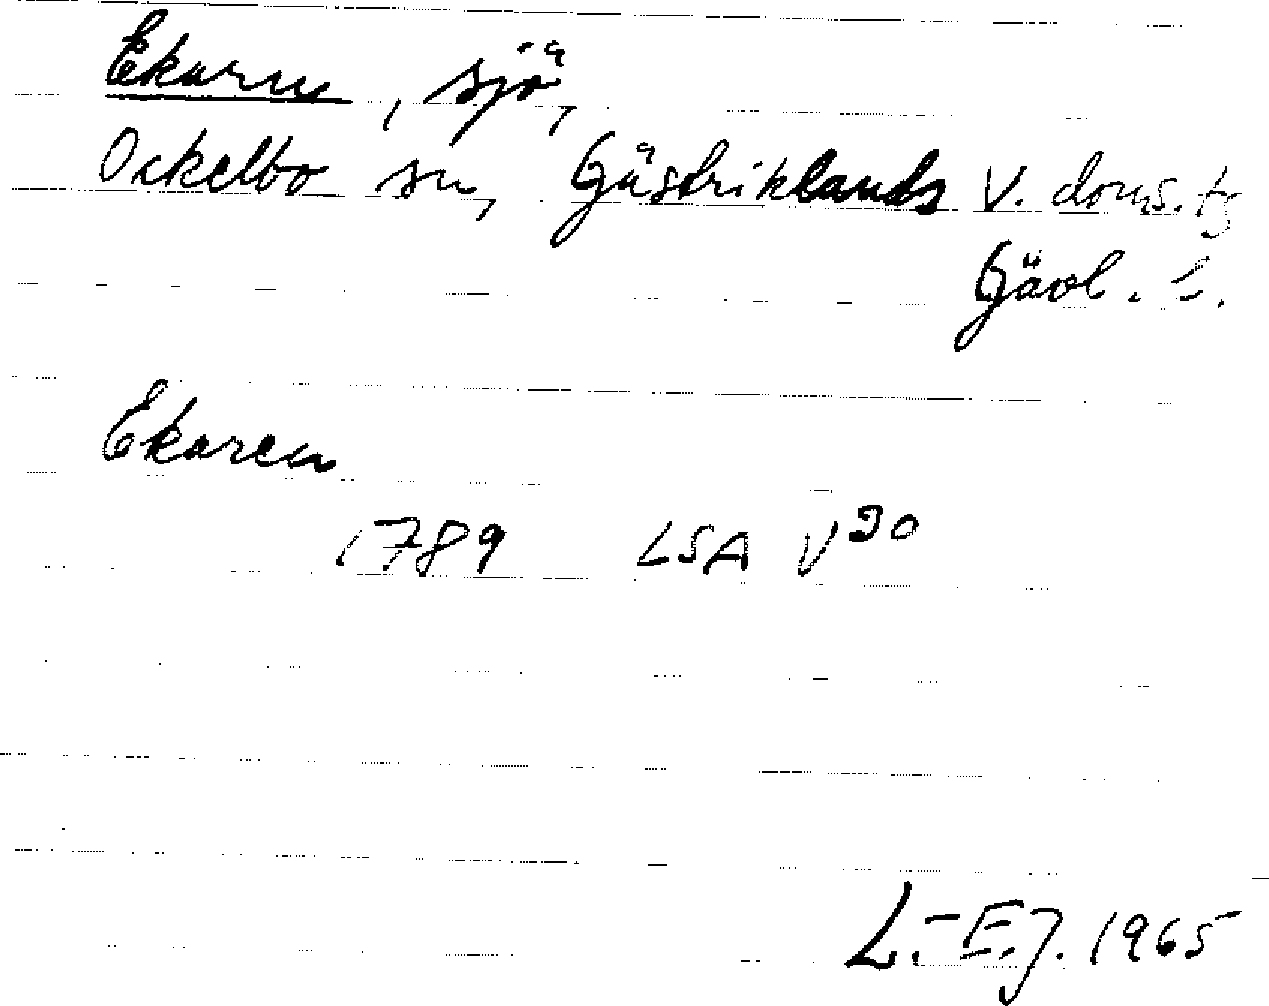 Ekaren, sjö,
Ockelbo sn, Gästriklands V. doms.tg
Gävl. l.
Ekaren
1789 LSA V30
L.-E.J. 1965